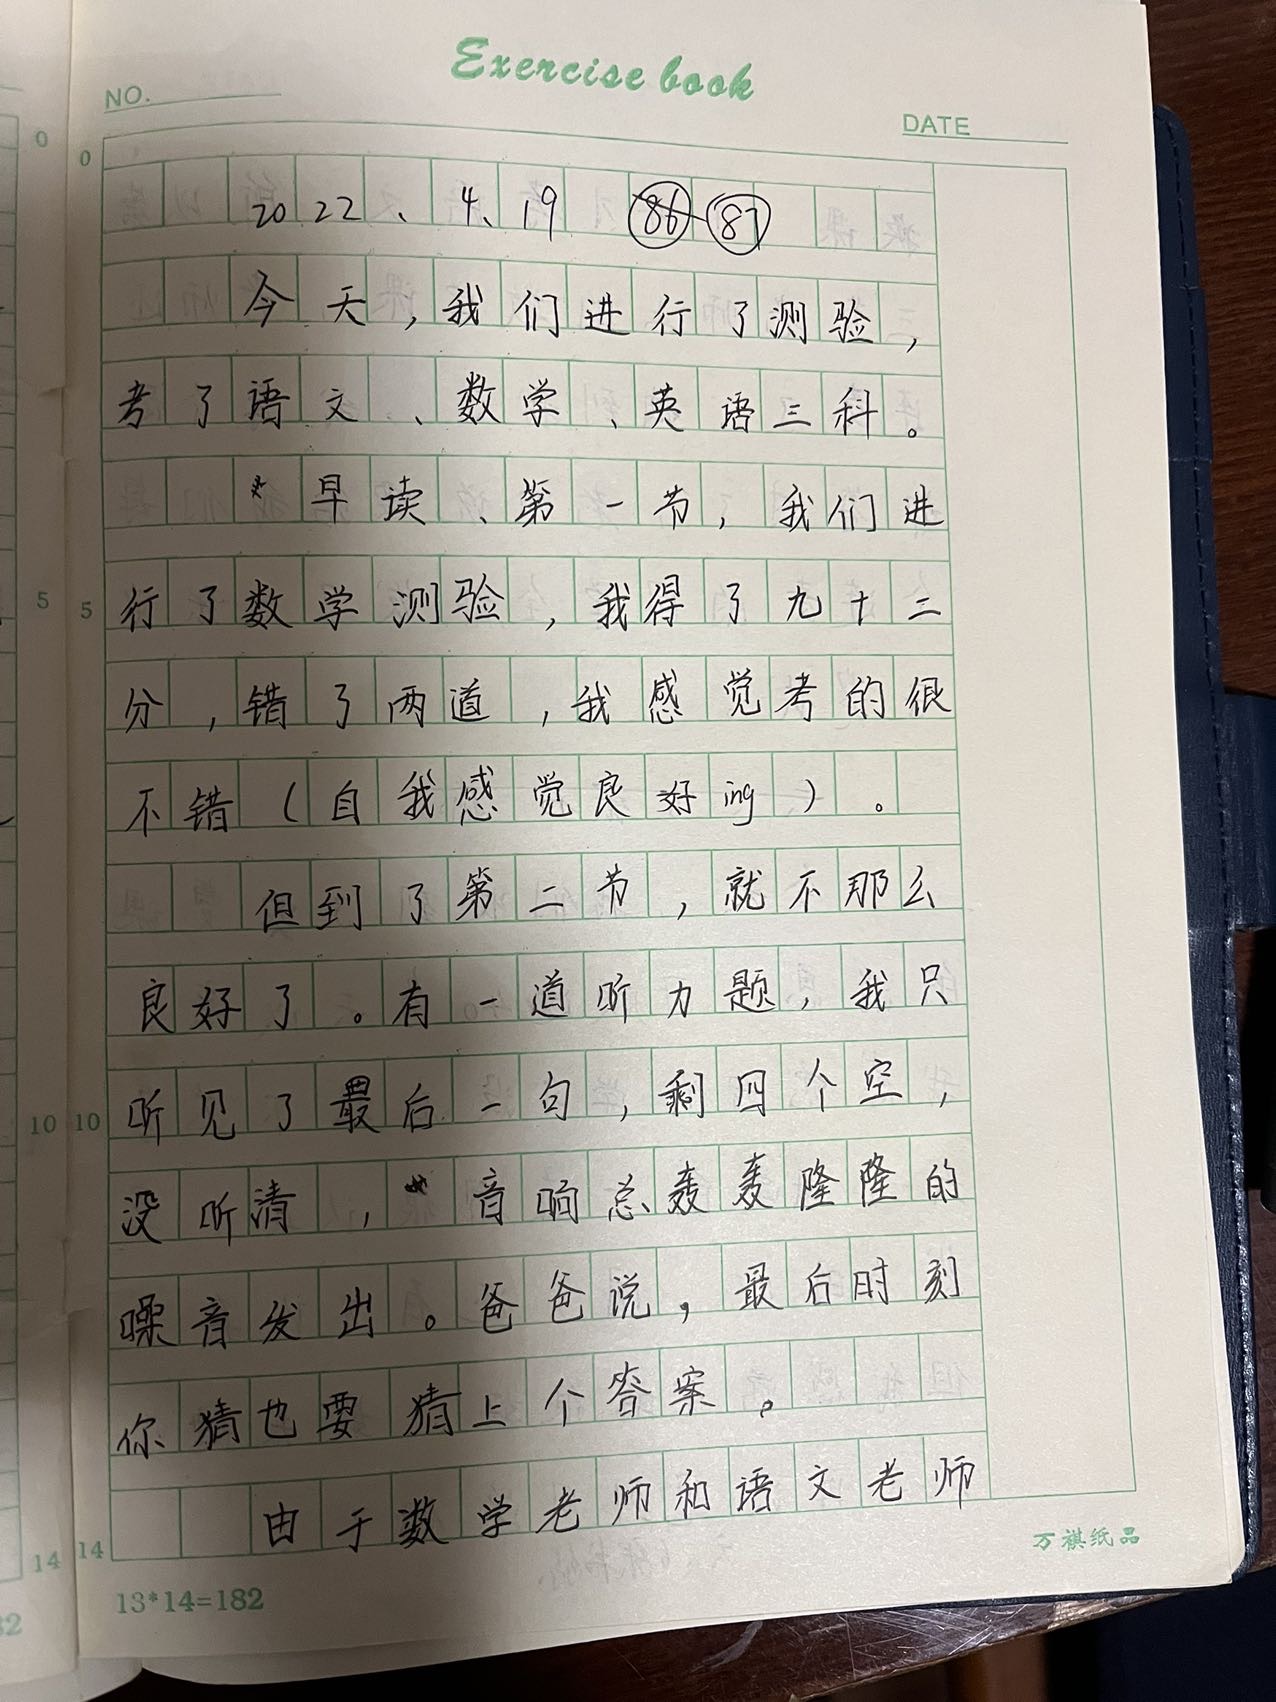 Exercise book
NO.
DATE
2022、4、19 86 87
今天，我们进行了测验，
考了语文、数学、英语三科。
早读、第一节，我们进
行了数学测验，我得了九十二
分，错了两道，我感觉考的很
不错（自我感觉良好ing）。
但到了第二节，就不那么
良好了。有一道听力题，我只
听见了最后一句，剩四个空，
没听清，音响总轰轰隆隆的
噪音发出。爸爸说，最后时刻
你猜也要猜上个答案。
由于数学老师和语文老师
万祺纸品
13*14=182
0
5
10
14
0
5
10
14